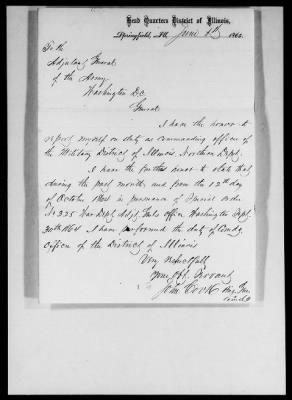 Head Quarters District of Illinois,
Springfield, Ill. June 186
To the
Adjutant General
of the Army
Washington D.C.
General
I have the honor to
report myself on duty as commanding officer of
the Military District of Illinois, Northern Dept.
I have the further honor to state that
during the past month and from the 12th day
of October 1864 in pursuance of General order
No 325 War Dept Adjt Genls office Washington Sept
30th 1864 I have performed the duty of Comdg
Officer of the District of Illinois
Very Respectfully
Your Obt. Servant
John Cook Brig. Gen.